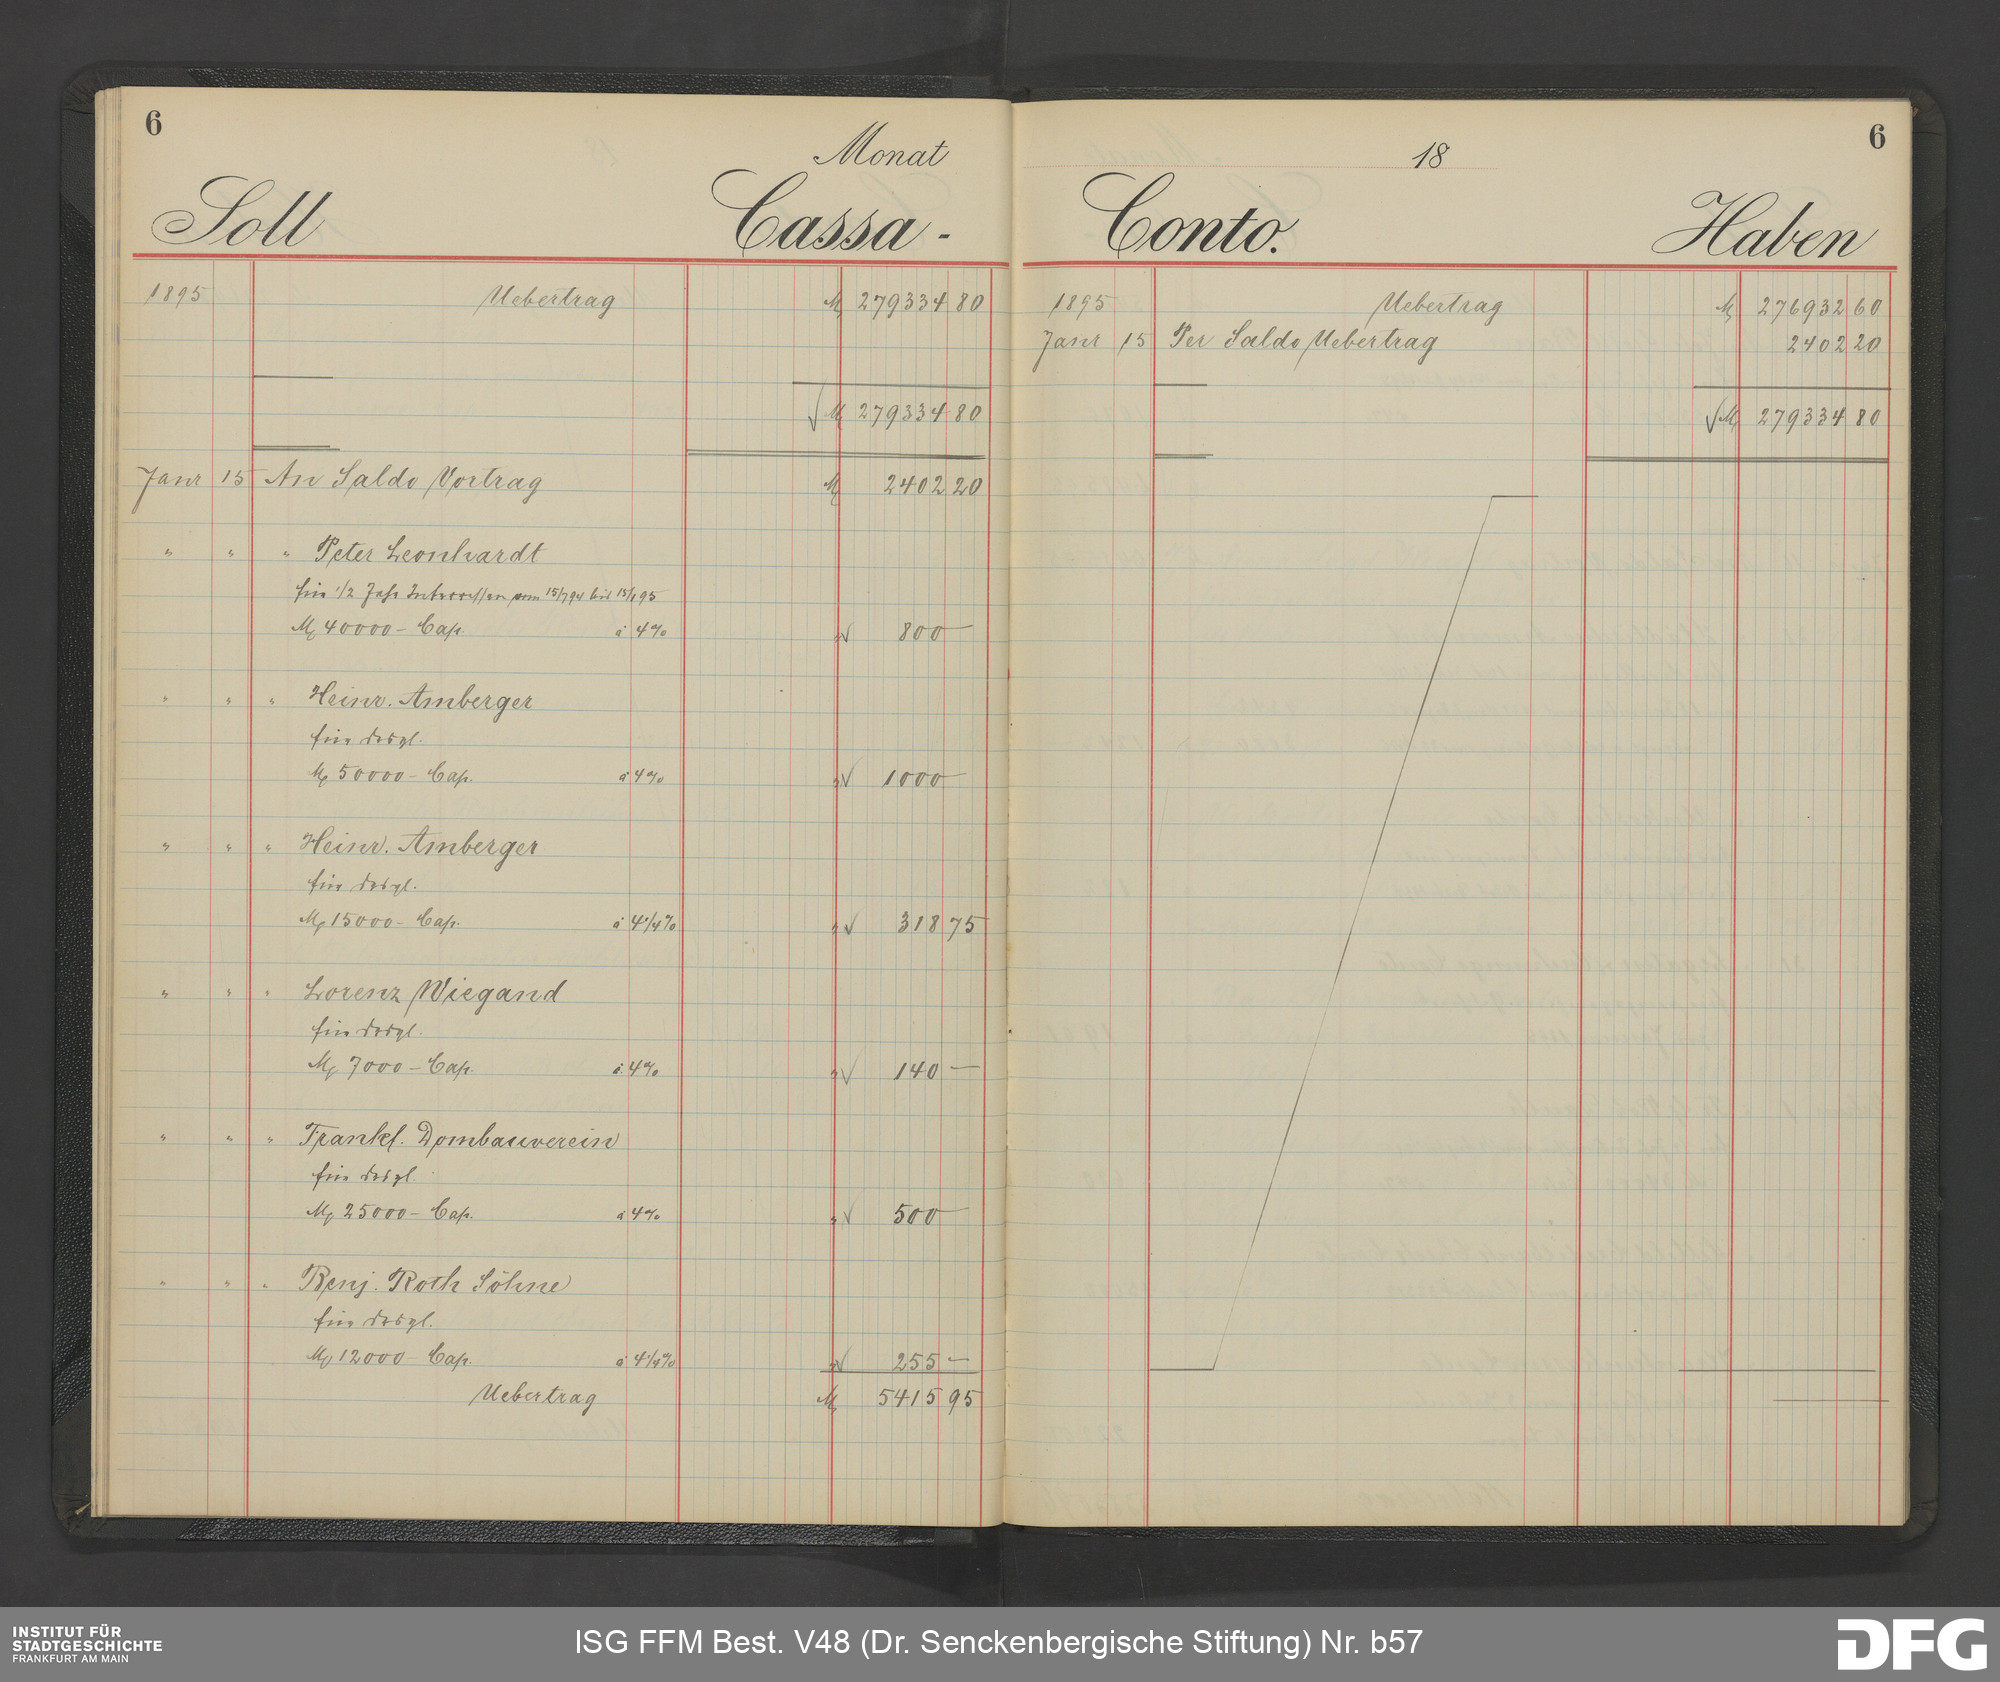 6
Monat
Soll Cassa -
1895 Uebertrag M 279334 80
√ M 279334 80
Janr 15 An Saldo Vortrag M 2402 20
" " " Peter Leonhardt
für 1/2 Jahr Interessen vom 15/7 94 bis 15/1 95
M 40000 - Cap. à 4% " √ 800 —
" " " Heinr. Amberger
für desgl.
M 50000 - Cap. à 4% " √ 1000 —
" " " Heinr. Amberger
für desgl.
M 15000 - Cap. à 4 1/4 % " √ 318 75
" " " Lorenz Wiegand
für desgl.
M 7000 - Cap. à 4% " √ 140 —
" " " Frankf. Dombauverein
für desgl.
M 25000 - Cap. à 4% " √ 500 —
" " " Benj. Roth Söhne
für desgl.
M 12000 - Cap. à 4 1/4 % " √ 255 —
Uebertrag M 5415 95
18 6
Conto. Haben
1895 Uebertrag M 276932 60
Janr 15 Per Saldo Uebertrag 2402 20
√ M 279334 80
INSTITUT FÜR
STADTGESCHICHTE
FRANKFURT AM MAIN
ISG FFM Best. V48 (Dr. Senckenbergische Stiftung) Nr. b57
DFG